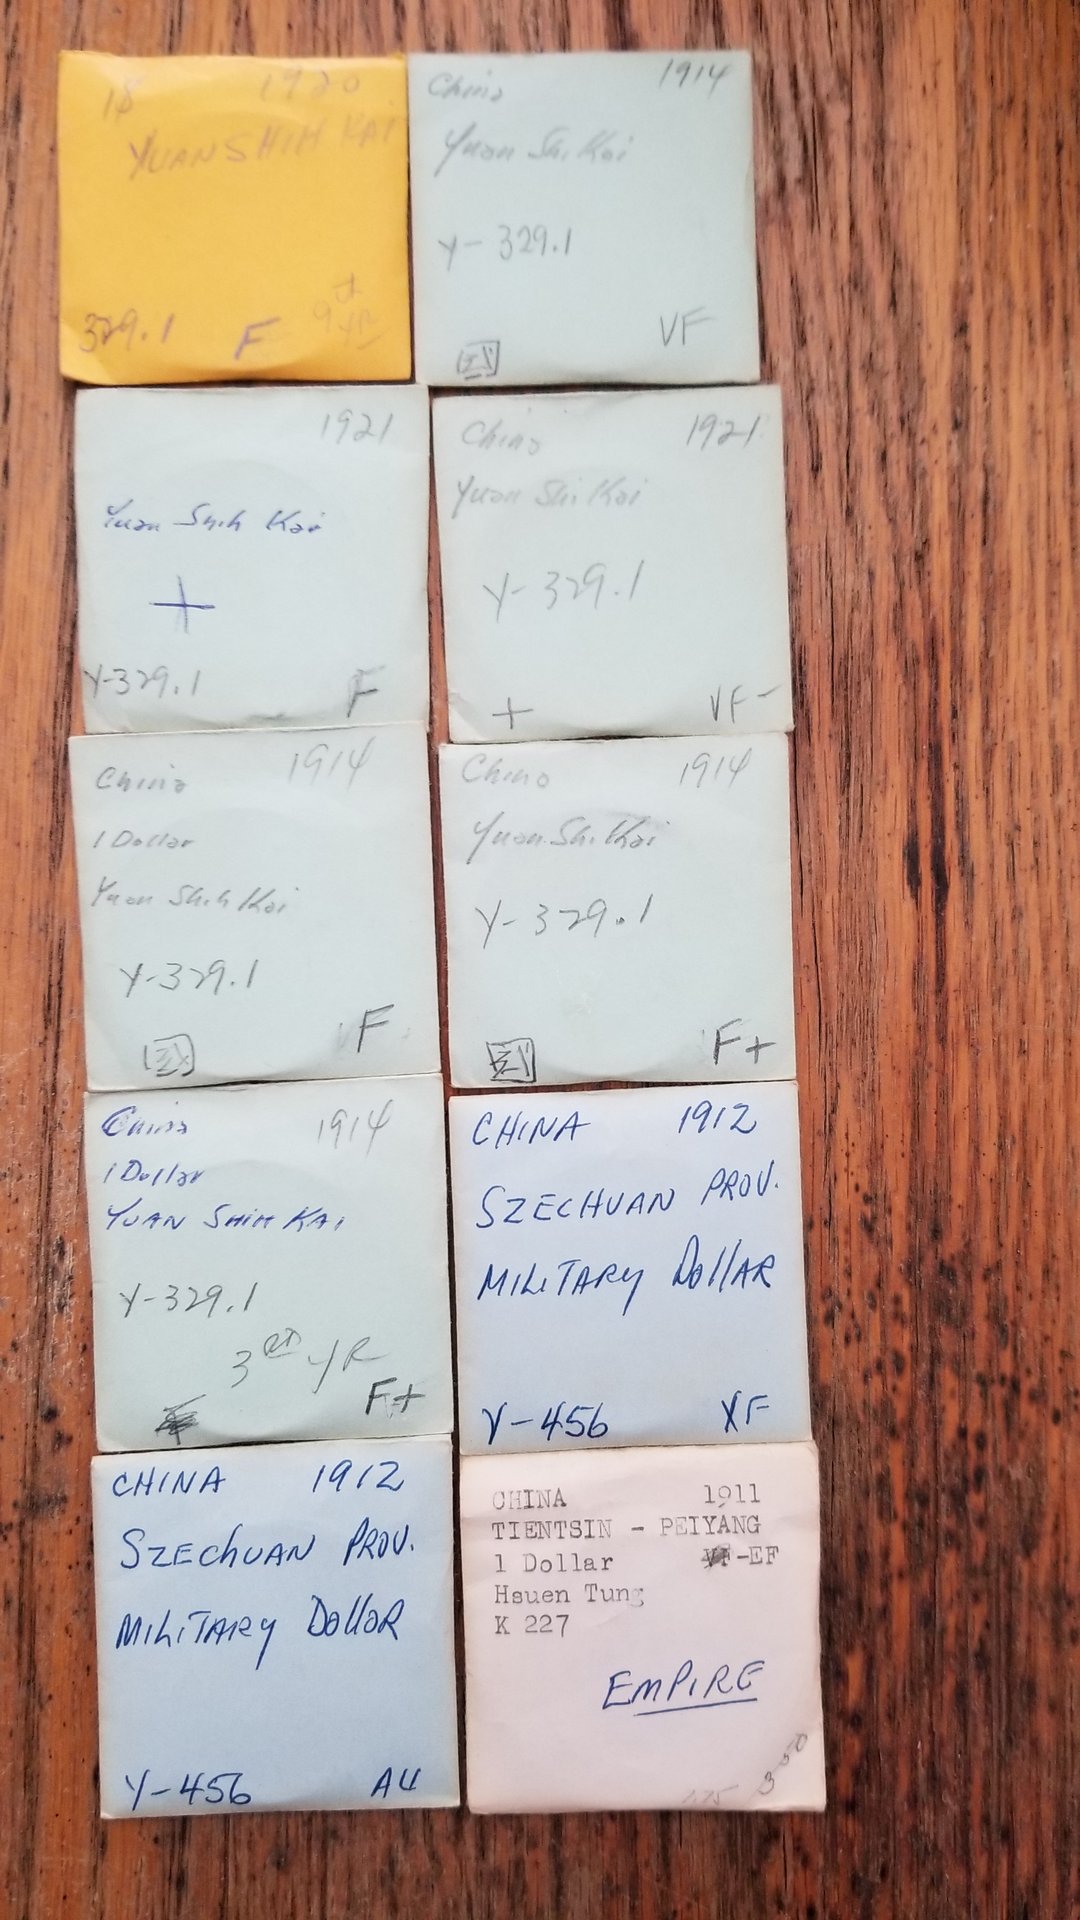 1$ 1920
YUAN SHIH KAI
329.1 F 9th YR
China 1914
Yuan Shi Kai
Y-329.1
VF
國
1921
Yuan Shih Kai
+
Y-329.1 F
China 1921
Yuan Shi Kai
Y-329.1
+ VF-
China 1914
1 Dollar
Yuan Shih Kai
Y-329.1
國 VF
China 1914
Yuan Shi Kai
Y-329.1
國 F+
China 1914
1 Dollar
YUAN SHIH KAI
Y-329.1
3RD YR
F+
CHINA 1912
SZECHUAN PROV.
MILITARY DOLLAR
Y-456 XF
CHINA 1912
SZECHUAN PROV.
MILITARY DOLLOR
Y-456 AU
CHINA 1911
TIENTSIN - PEIYANG
1 Dollar VF-EF
Hsuen Tung
K 227
EMPIRE
350
175